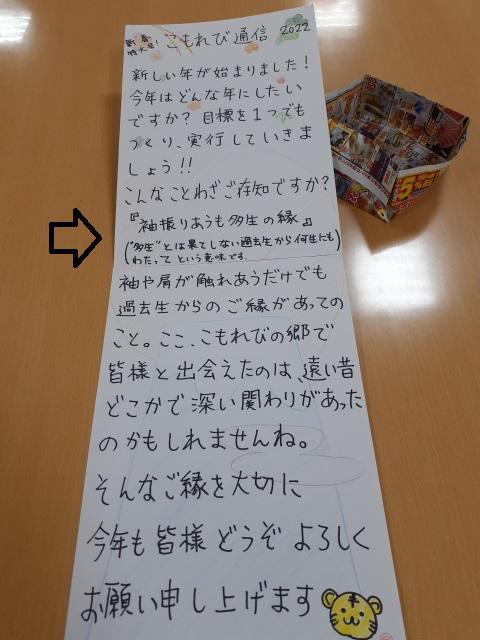 新春
特大号!
こもれび通信 2022
新しい年が始まりました!
今年はどんな年にしたい
ですか?目標を1つでも
つくり、実行していきま
しょう!!
こんなことわざご存知ですか?
『袖振りあうも多生の縁』
("多生"とは果てしない過去生から何生にも
わたって という意味です.)
袖や肩が触れあうだけでも
過去生からのご縁があっての
こと。ここ、こもれびの郷で
皆様と出会えたのは、遠い昔
どこかで深い関わりがあった
のかもしれませんね。
そんなご縁を大切に
今年も皆様どうぞよろしく
お願い申し上げます